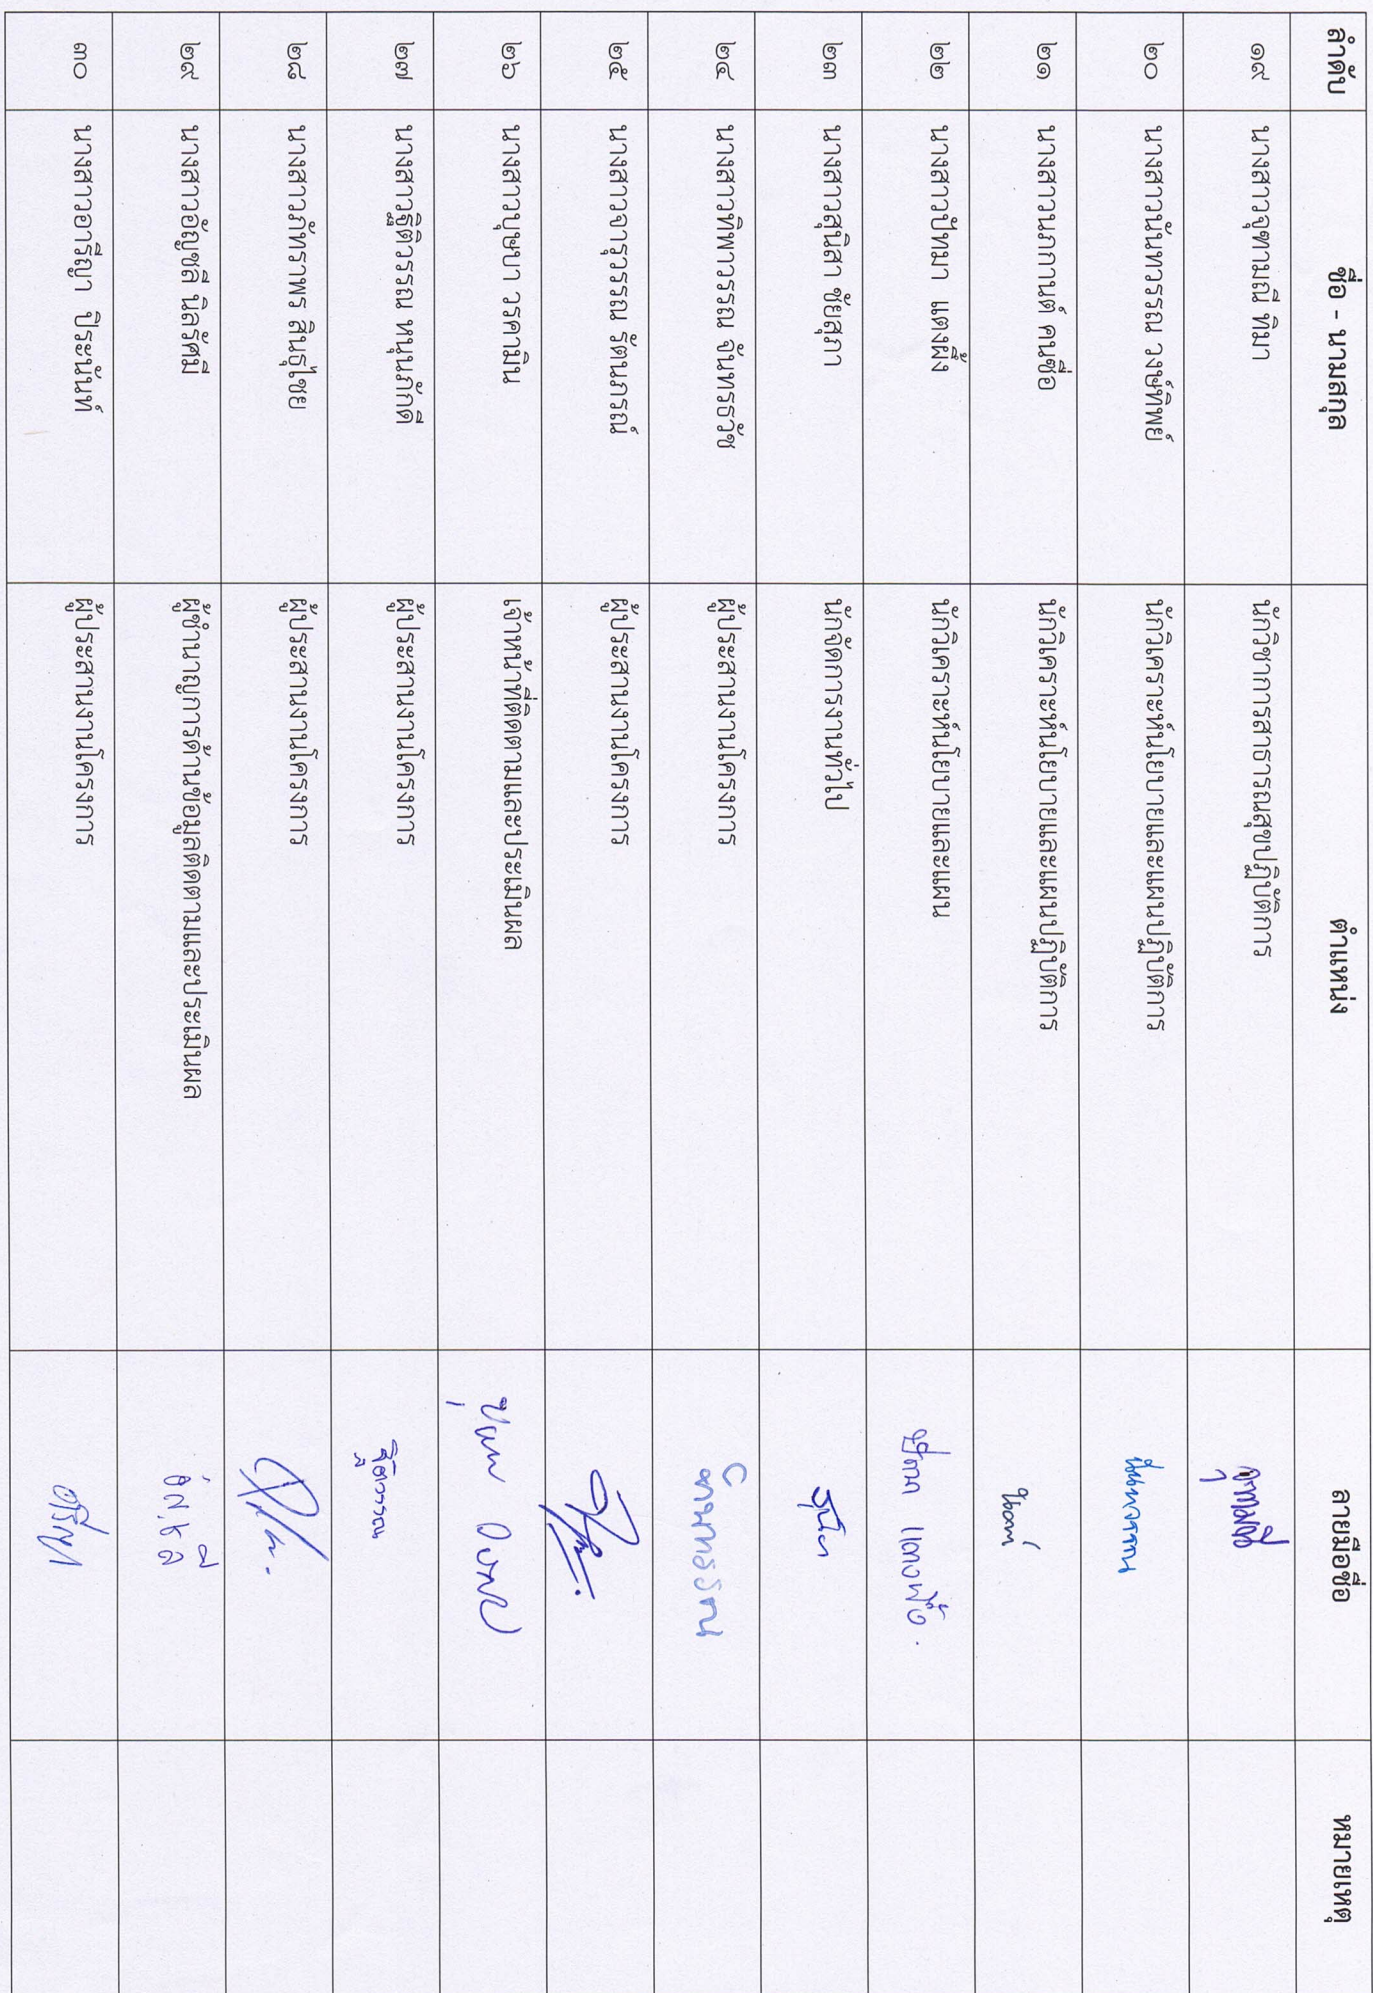 ลำดับ ชื่อ - นามสกุล ตำแหน่ง ลายมือชื่อ หมายเหตุ
๑๙ นางสาวจุฑามณี ทิมา นักวิชาการสาธารณสุขปฏิบัติการ จุฑามณี
๒๐ นางสาวนันทวรรณ วงษ์ทิพย์ นักวิเคราะห์นโยบายและแผนปฏิบัติการ นันทวรรณ
๒๑ นางสาวนภกานต์ คนซื่อ นักวิเคราะห์นโยบายและแผนปฏิบัติการ
๒๒ นางสาวปัทมา แตงผึ้ง นักวิเคราะห์นโยบายและแผน ปัทมา แตงผึ้ง
๒๓ นางสาวสุนิสา ชัยสุภา นักจัดการงานทั่วไป
๒๔ นางสาวทิพาวรรณ จันทรธวัช ผู้ประสานงานโครงการ
๒๕ นางสาวจารุวรรณ รัตนภรณ์ ผู้ประสานงานโครงการ
๒๖ นางสาวบุษบา วรคามิน เจ้าหน้าที่ติดตามและประเมินผล
๒๗ นางสาวฐิติวรรณ หนุนภักดี ผู้ประสานงานโครงการ ฐิติวรรณ
๒๘ นางสาวภัทราพร สินธุไชย ผู้ประสานงานโครงการ
๒๙ นางสาวอัญชลี นิลรัศมี ผู้ชำนาญการด้านข้อมูลติดตามและประเมินผล อัญชลี
๓๐ นางสาวอารีญา ปิระนันท์ ผู้ประสานงานโครงการ